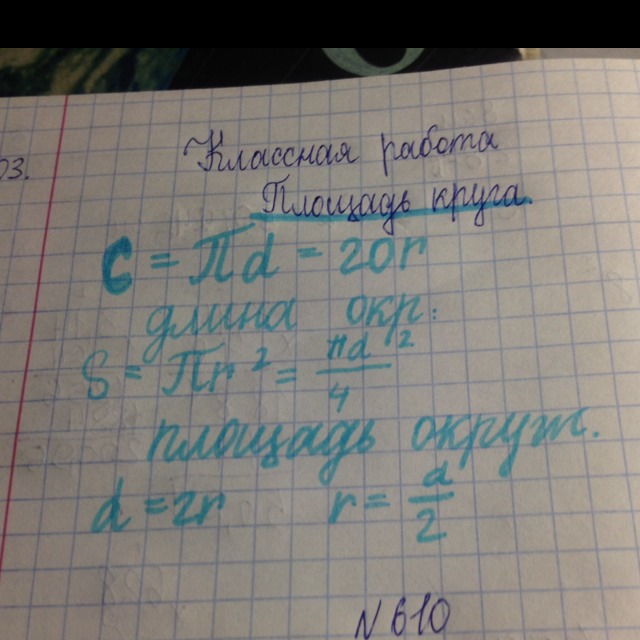 03.
Классная работа
Площадь круга.
C = πd = 20r
длина окр.
S = πr² = πd²/4
площадь окруж.
d = 2r r = d/2
N 610